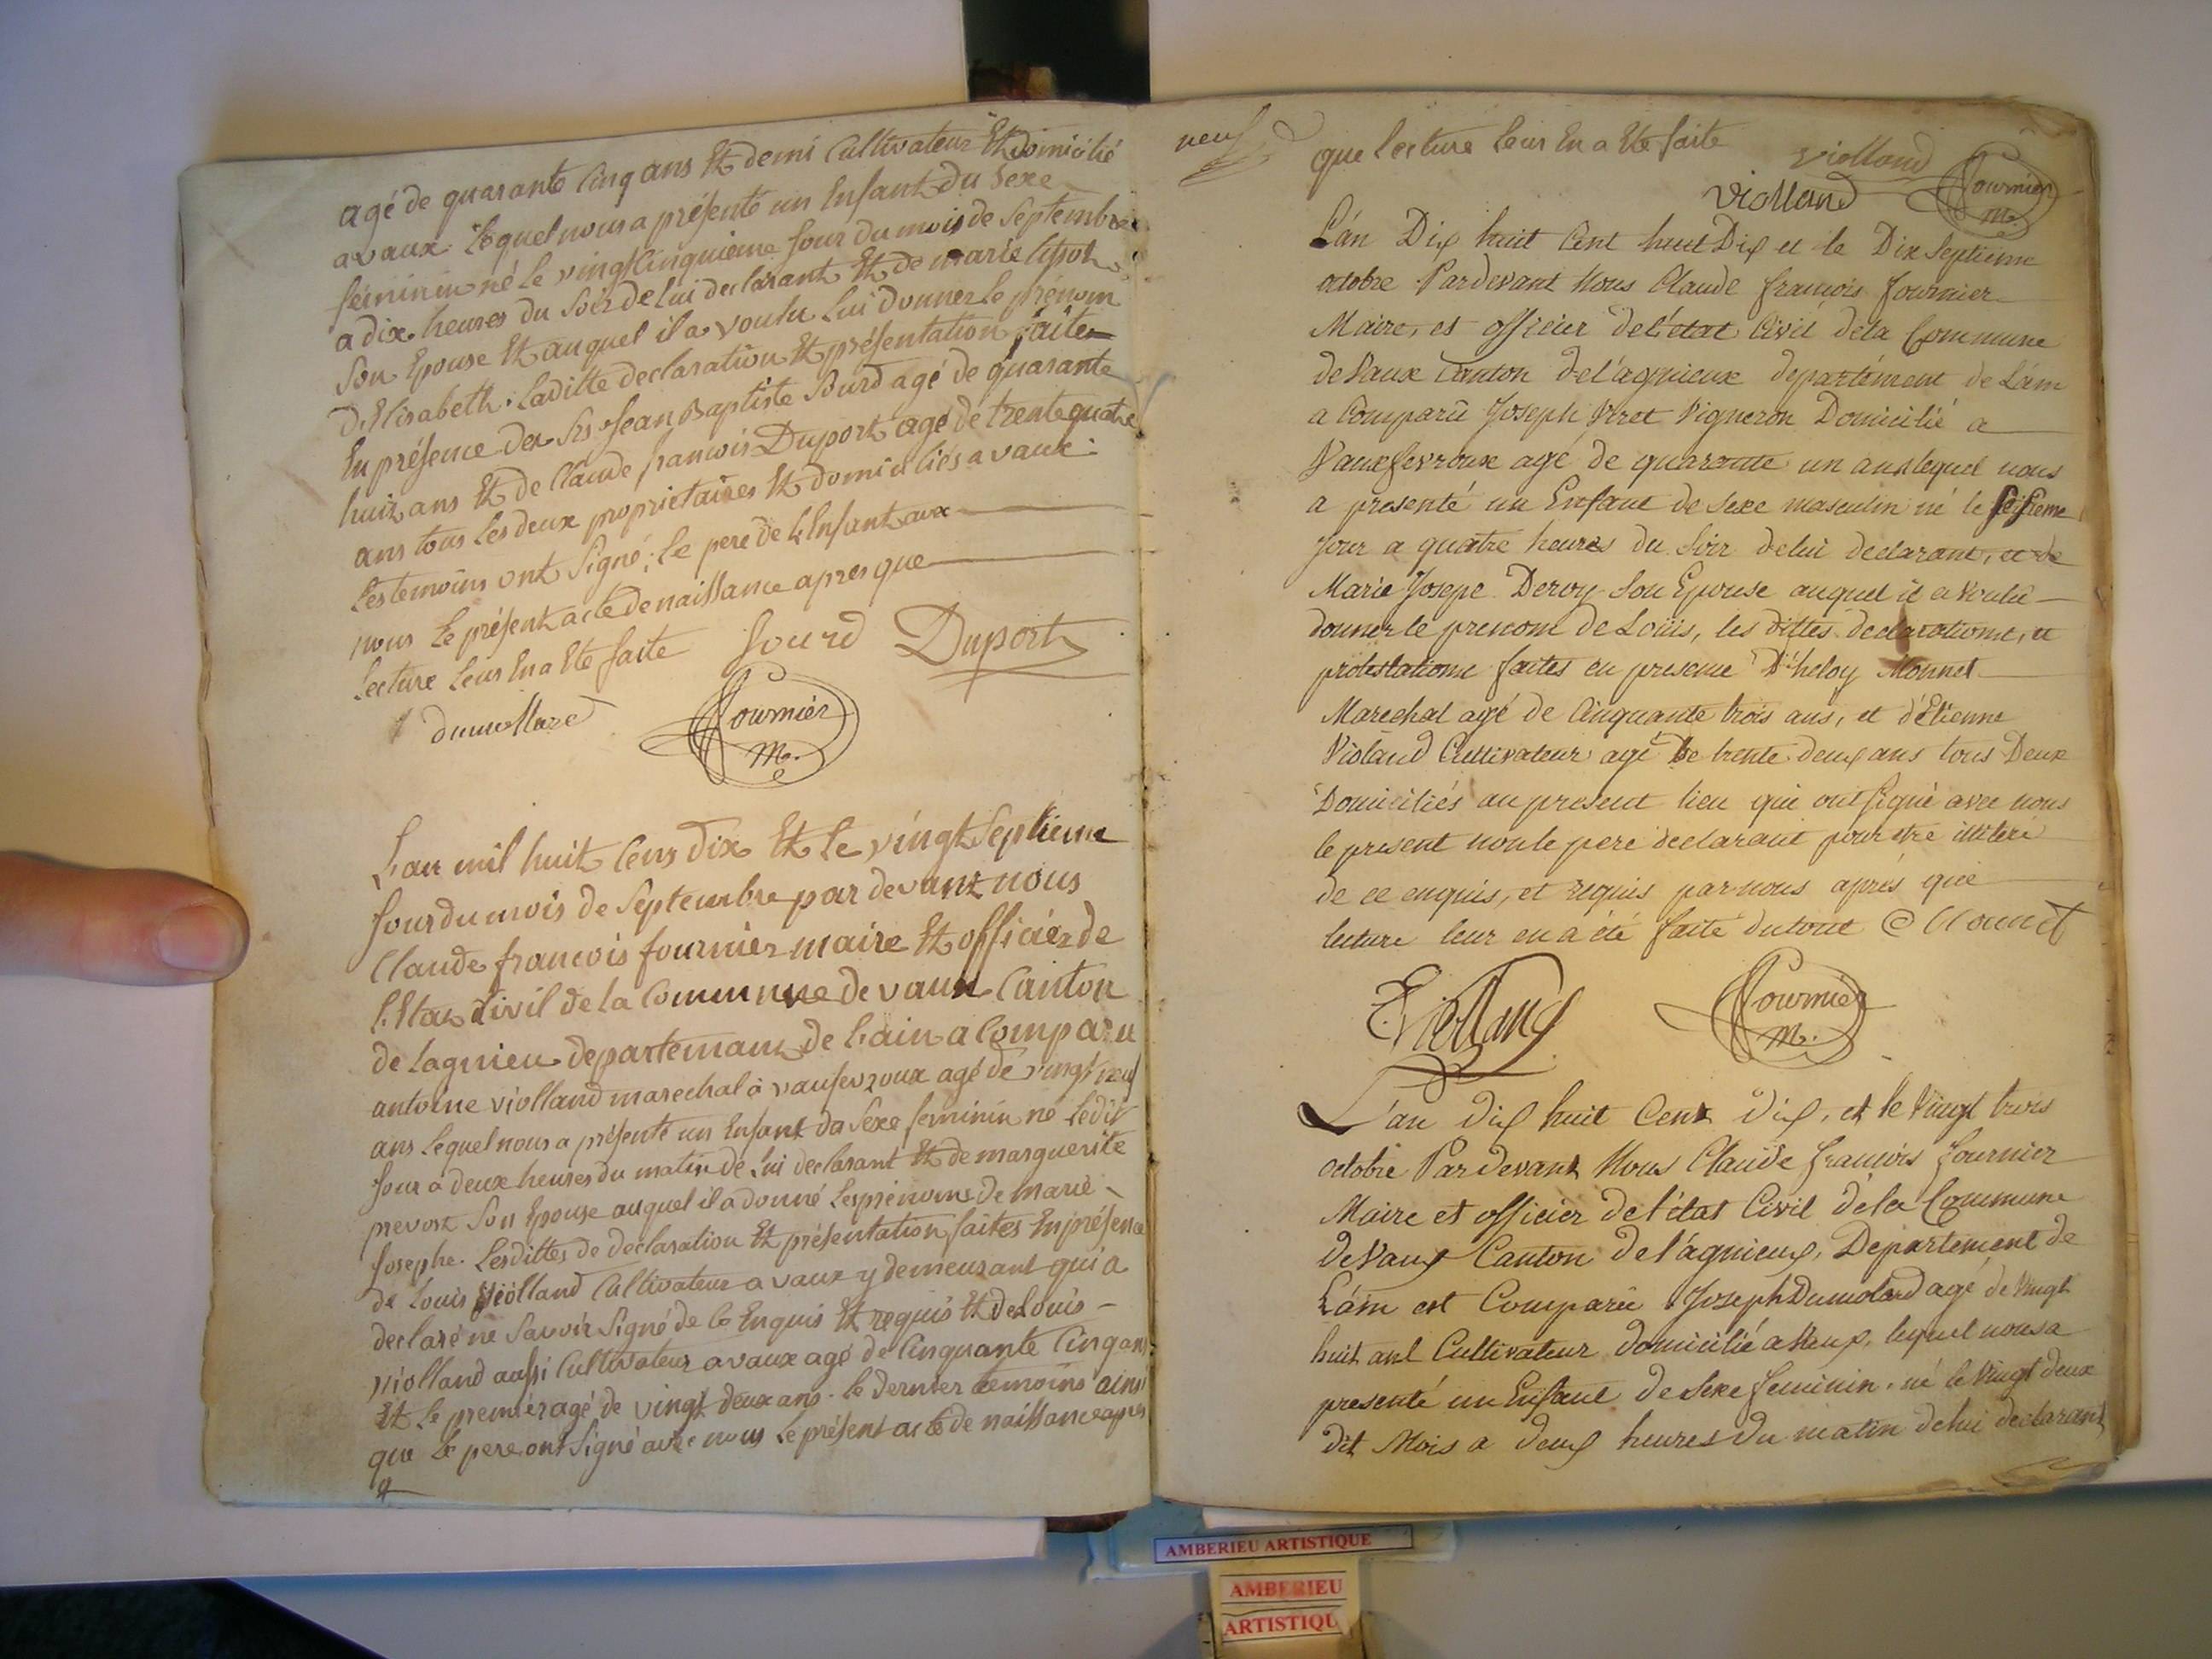 agé de quarante Cinq ans Et demi Cultivateur Et domicilié
a vaux. Lequel nous a présenté un Enfant du Sexe
féminin né le vingt Cinquieme Jour du mois de Septembre
a dix heures du Soir de Lui declarant Et de marie
Son Epouse Et auquel il a voulu Lui donner le prénom
D'Elisabeth. Laditte declaration Et présentation faite
En présence des Srs Jean Baptiste Sourd agé de quarante
huit ans Et de Claude francois Duport agé de trente quatre
ans tous Les deux proprietaires Et domiciliés a vaux.
Les temoins ont Signé; Le pere de L'Enfant avec
nous Le présent acte de naissance apres que
Lecture Leur En a Eté faite Sourd Duport
dumollard Fournier
M.
L'an mil huit Cens dix Et Le vingt Septieme
Jour du mois de Septembre par devant nous
Claude francois fournier maire Et officier de
L'Etat Civil de la Commune de vaux Canton
de Lagnieu departemant de Lain a Comparu
antoine violland marechal à vaufevroux agé de vingt neuf
ans Lequel nous a présenté un Enfant du Sexe feminin né Ledit
Jour a deux heures du matin de Lui declarant Et de marguerite
prevost Son Epouse auquel il a donné Les prénoms de marie
Josephe. Lesdittes de declaration Et présentation faites En présence
de Louis violland Cultivateur a vaux y demeurant qui a
declaré ne Savoir Signé de Ce Enquis Et requis Et de Louis
violland aussi Cultivateur a vaux agé de Cinquante Cinq ans
Et Le premier agé de vingt deux ans. Le dernier temoins ainsi
que Le pere ont Signé avec nous Le présent acte de naissance apres
neuf
que Lecture Leur En a Eté faite violland
violland Fournier
M.
L'an Dix huit Cent huit Dix et le Dix Septieme
octobre Pardevant Nous Claude francois fournier
Maire, et officier de l'état Civil de la Commune
de Vaux Canton de l'agnieux departément de L'ain
a Comparû Joseph Viret Vigneron Domicilié a
Vauxfevroux agé de quarante un ans lequel nous
a presenté un Enfant de Sexe masculin né le Seisieme
jour a quatre heures du Soir de lui declarant, et de
Marie Josepe Deroy Son Epouse auquel il a Voulû
donner le prenom de Loüis, les dittes declarations, et
protestations faites en presence D'heloy Monnet
Marechal agé de Cinquante trois ans, et d'Etienne
Violand Cultivateur agé de trente deux ans tous Deux
Domiciliés au present lieu qui ont Signé avec nous
le present non le pere declarant pour etre illiteré
de ce enquis, et requis par nous aprés que
lecture leur en a été faite du tout Monnet
E. Violland Fournier
M.
L'an Dix huit Cent Dix, et le Vingt trois
octobre Pardevant Nous Claude francois fournier
Maire et officier de l'état Civil de la Commune
de Vaux Canton de l'agnieux, Departement de
L'ain est Comparû Joseph Dumolard agé de Vingt
huit ans Cultivateur domicilié a Vaux, lequel nous a
presenté un Enfant de Sexe feminin né le Vingt deux
dit Mois a deux heures du matin de lui declarant
AMBERIEU ARTISTIQUE
AMBERIEU
ARTISTIQU